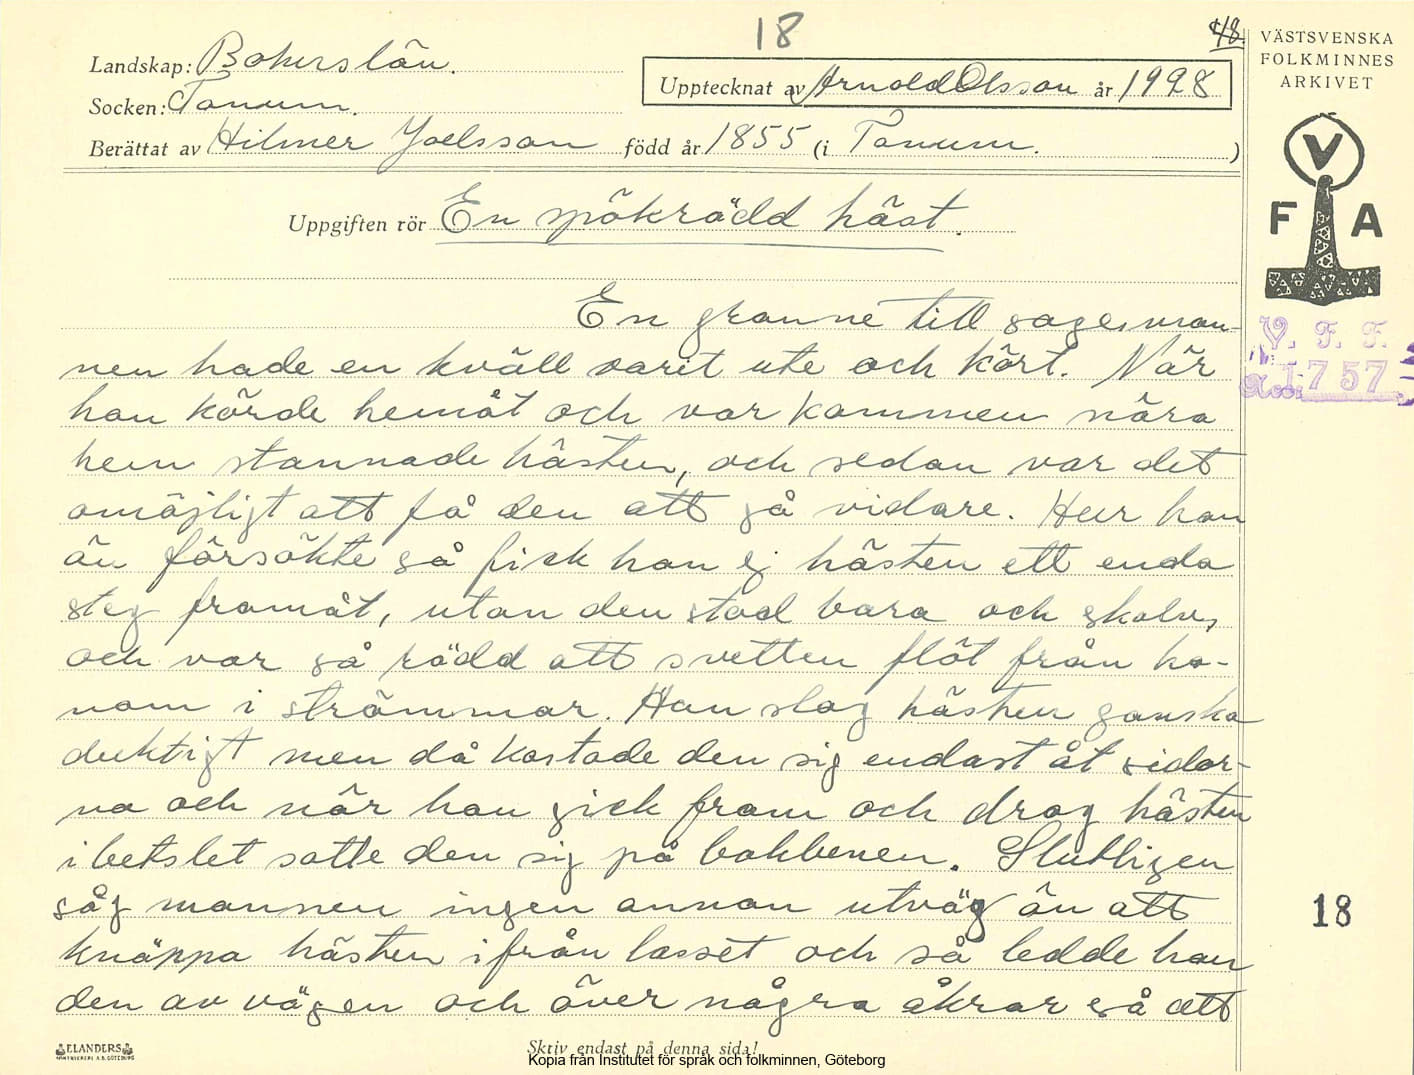 18
48.
Landskap: Bohuslän.
Socken: Tanum.
Berättat av Hilmer Joelsson född år 1855 (i Tanum. )
Upptecknat av Arnold Olsson år 1928
VÄSTSVENSKA
FOLKMINNES
ARKIVET
V
F A
Uppgiften rör En spökrädd häst.
V. F. F.
1757
En granne till sagesman-
nen hade en kväll varit ute och kört. När
han körde hemåt och var kommen nära
hem stannade hästen, och sedan var det
omöjligt att få den att gå vidare. Hur han
än försökte så fick han ej hästen ett enda
steg framåt, utan den stod bara och skalv,
och var så rädd att svetten flöt från ho-
nom i strömmar. Han slog hästen ganska
duktigt men då kastade den sig endast åt sidor-
na och när han gick fram och drog hästen
i betslet satte den sig på bakbenen. Slutligen
såg mannen ingen annan utväg än att
knäppa hästen ifrån lasset och så ledde han
den av vägen och över några åkrar så att
18
ELANDERS
Skriv endast på denna sida!
Kopia från Institutet för språk och folkminnen, Göteborg